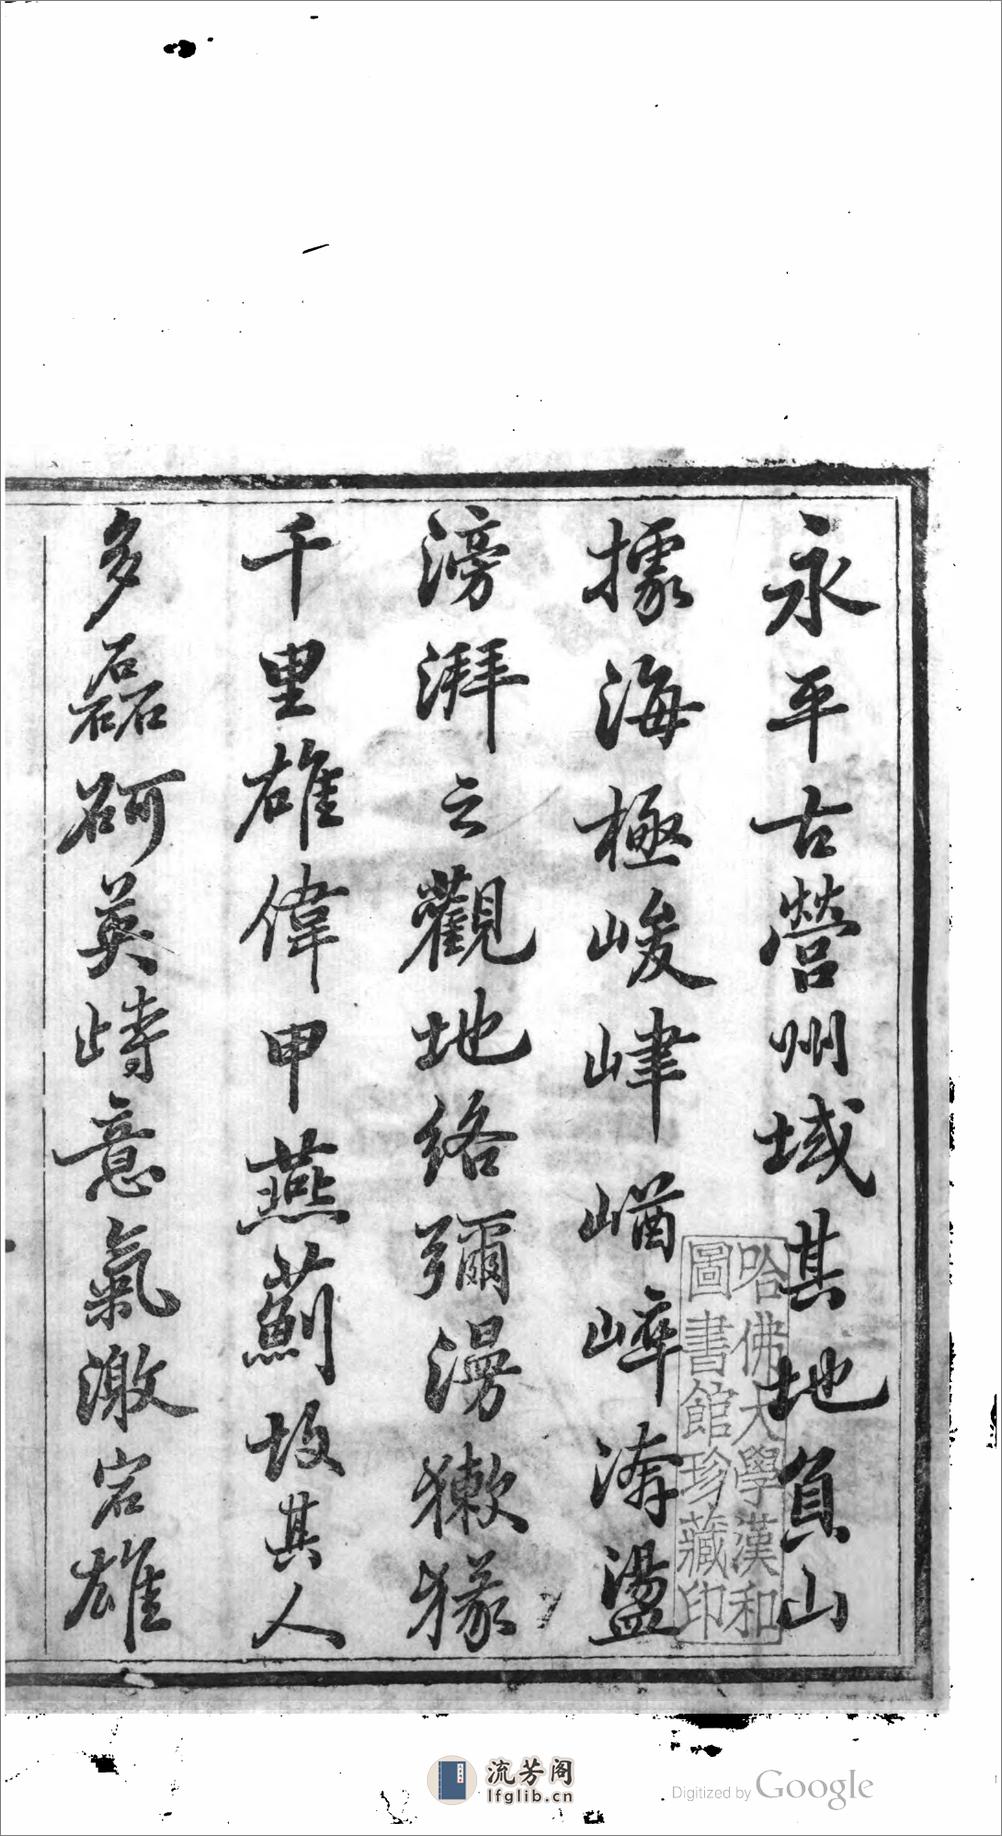 永平古營州域其地負山
據海極峻峍崷崪洊盪
滂湃之觀地絡彌漫獙㺄
千里雄偉甲燕薊故其人
多磊砢英峙意氣激宕雄
哈佛大學漢和
圖書館珍藏印
流芳阁
lfglib.cn
Digitized by Google